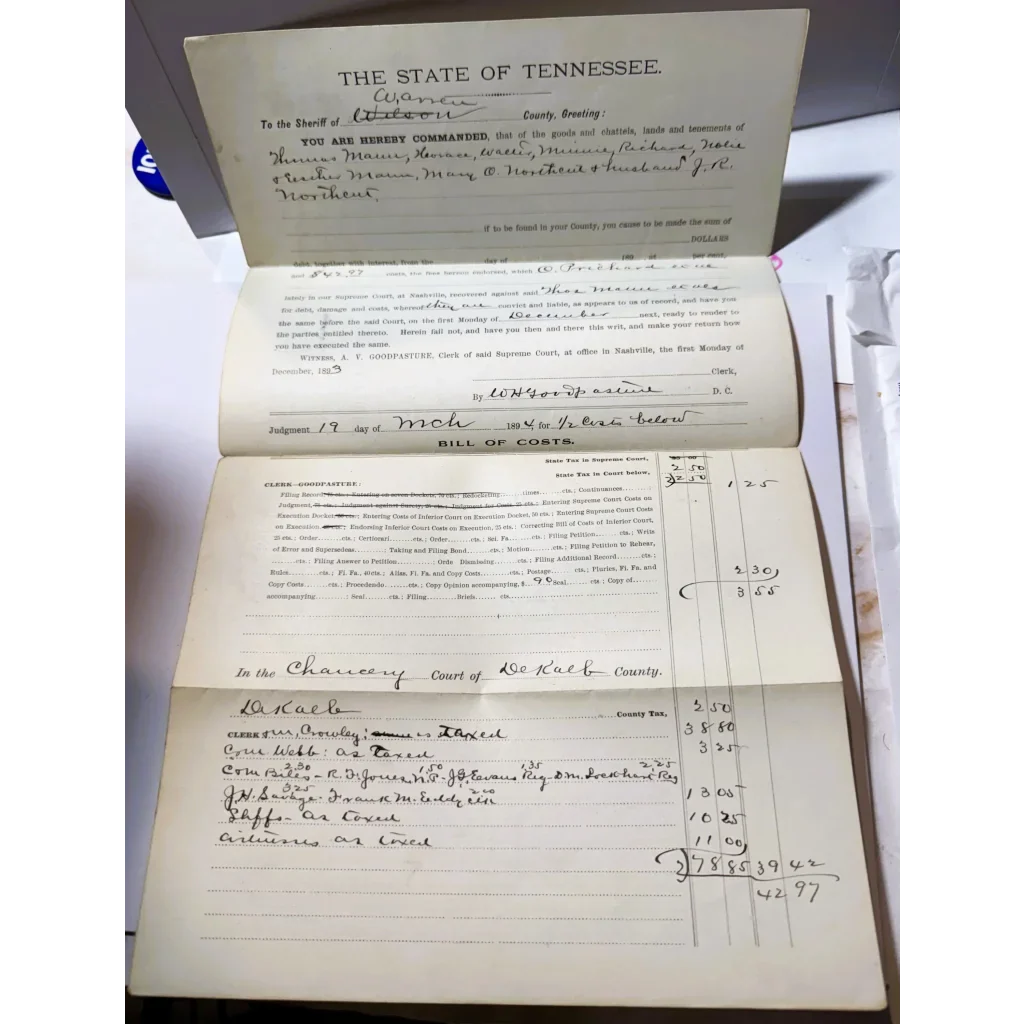 THE STATE OF TENNESSEE.
Warren
To the Sheriff of Wilson County, Greeting:
YOU ARE HEREBY COMMANDED, that of the goods and chattels, lands and tenements of
Thomas Mann, Horace, Walter, Minnie, Richard,
& Mann, Mary O. Northcut & husband J. R.
Northcut,
if to be found in your County, you cause to be made the sum of
DOLLARS
debt, together with interest, from the day of 189 at per cent,
and $42.97 costs, the fees hereon endorsed, which O. Prichard et ux
lately in our Supreme Court, at Nashville, recovered against said Thos Mann et als
for debt, damage and costs, whereof they are convict and liable, as appears to us of record, and have you
the same before the said Court, on the first Monday of December next, ready to render to
the parties entitled thereto. Herein fail not, and have you then and there this writ, and make your return how
you have executed the same.
WITNESS, A. V. GOODPASTURE, Clerk of said Supreme Court, at office in Nashville, the first Monday of
December, 1893
Clerk,
By WHGoodpasture D. C.
Judgment 19 day of Mch 1894 for 1/2 Costs below
BILL OF COSTS.
State Tax in Supreme Court,
2 50
State Tax in Court below,
2)2 50 1 25
CLERK—GOODPASTURE:
Filing Record, 25 cts.; Entering on seven Dockets, 70 cts.; Redocketing times cts.; Continuances
Judgment, 75 cts.; Judgment against Surety, 25 cts.; Judgment for Costs 25 cts.; Entering Supreme Costs on
Execution Docket, cts.; Entering Costs of Inferior Court on Execution Docket, 50 cts.; Entering Supreme Court Costs
on Execution cts.; Endorsing Inferior Court Costs on Execution, 25 cts.; Correcting Bill of Costs of Inferior Court,
25 cts.; Order cts.; Certiorari cts.; Order cts.; Sci. Fa. cts.; Filing Petition cts.; Writs
of Error and Supersedeas Taking and Filing Bond cts.; Motion cts.; Filing Petition to Rehear,
cts.; Filing Answer to Petition Orde Dismissing cts.; Filing Additional Record cts.;
Rules cts.; Fi. Fa., 40 cts.; Alias, Fi. Fa. and Copy Costs cts.; Postage cts.; Pluries, Fi. Fa. and 2 30
Copy Costs cts.; Procedendo cts.; Copy Opinion accompanying, $ 90 Seal cts.; Copy of
accompanying ; Seal cts.; Filing Briefs cts. 3 55
In the Chancery Court of DeKalb County.
DeKalb County Tax, 2 50
CLERK Crowley: as taxed 38 80
Com Webb: as taxed 3 25
2,30 1,50 1,35 2,25
Com Biles - R. F. Jones, N.P. - J. Evans Reg - D.M. Lockhart Reg
3,25 2 00
J. H. Savage - Frank M. Eddy clk 13 05
Shffs - as taxed 10 25
Witnesses as taxed 11 00
2)78 85 39 42
42 97